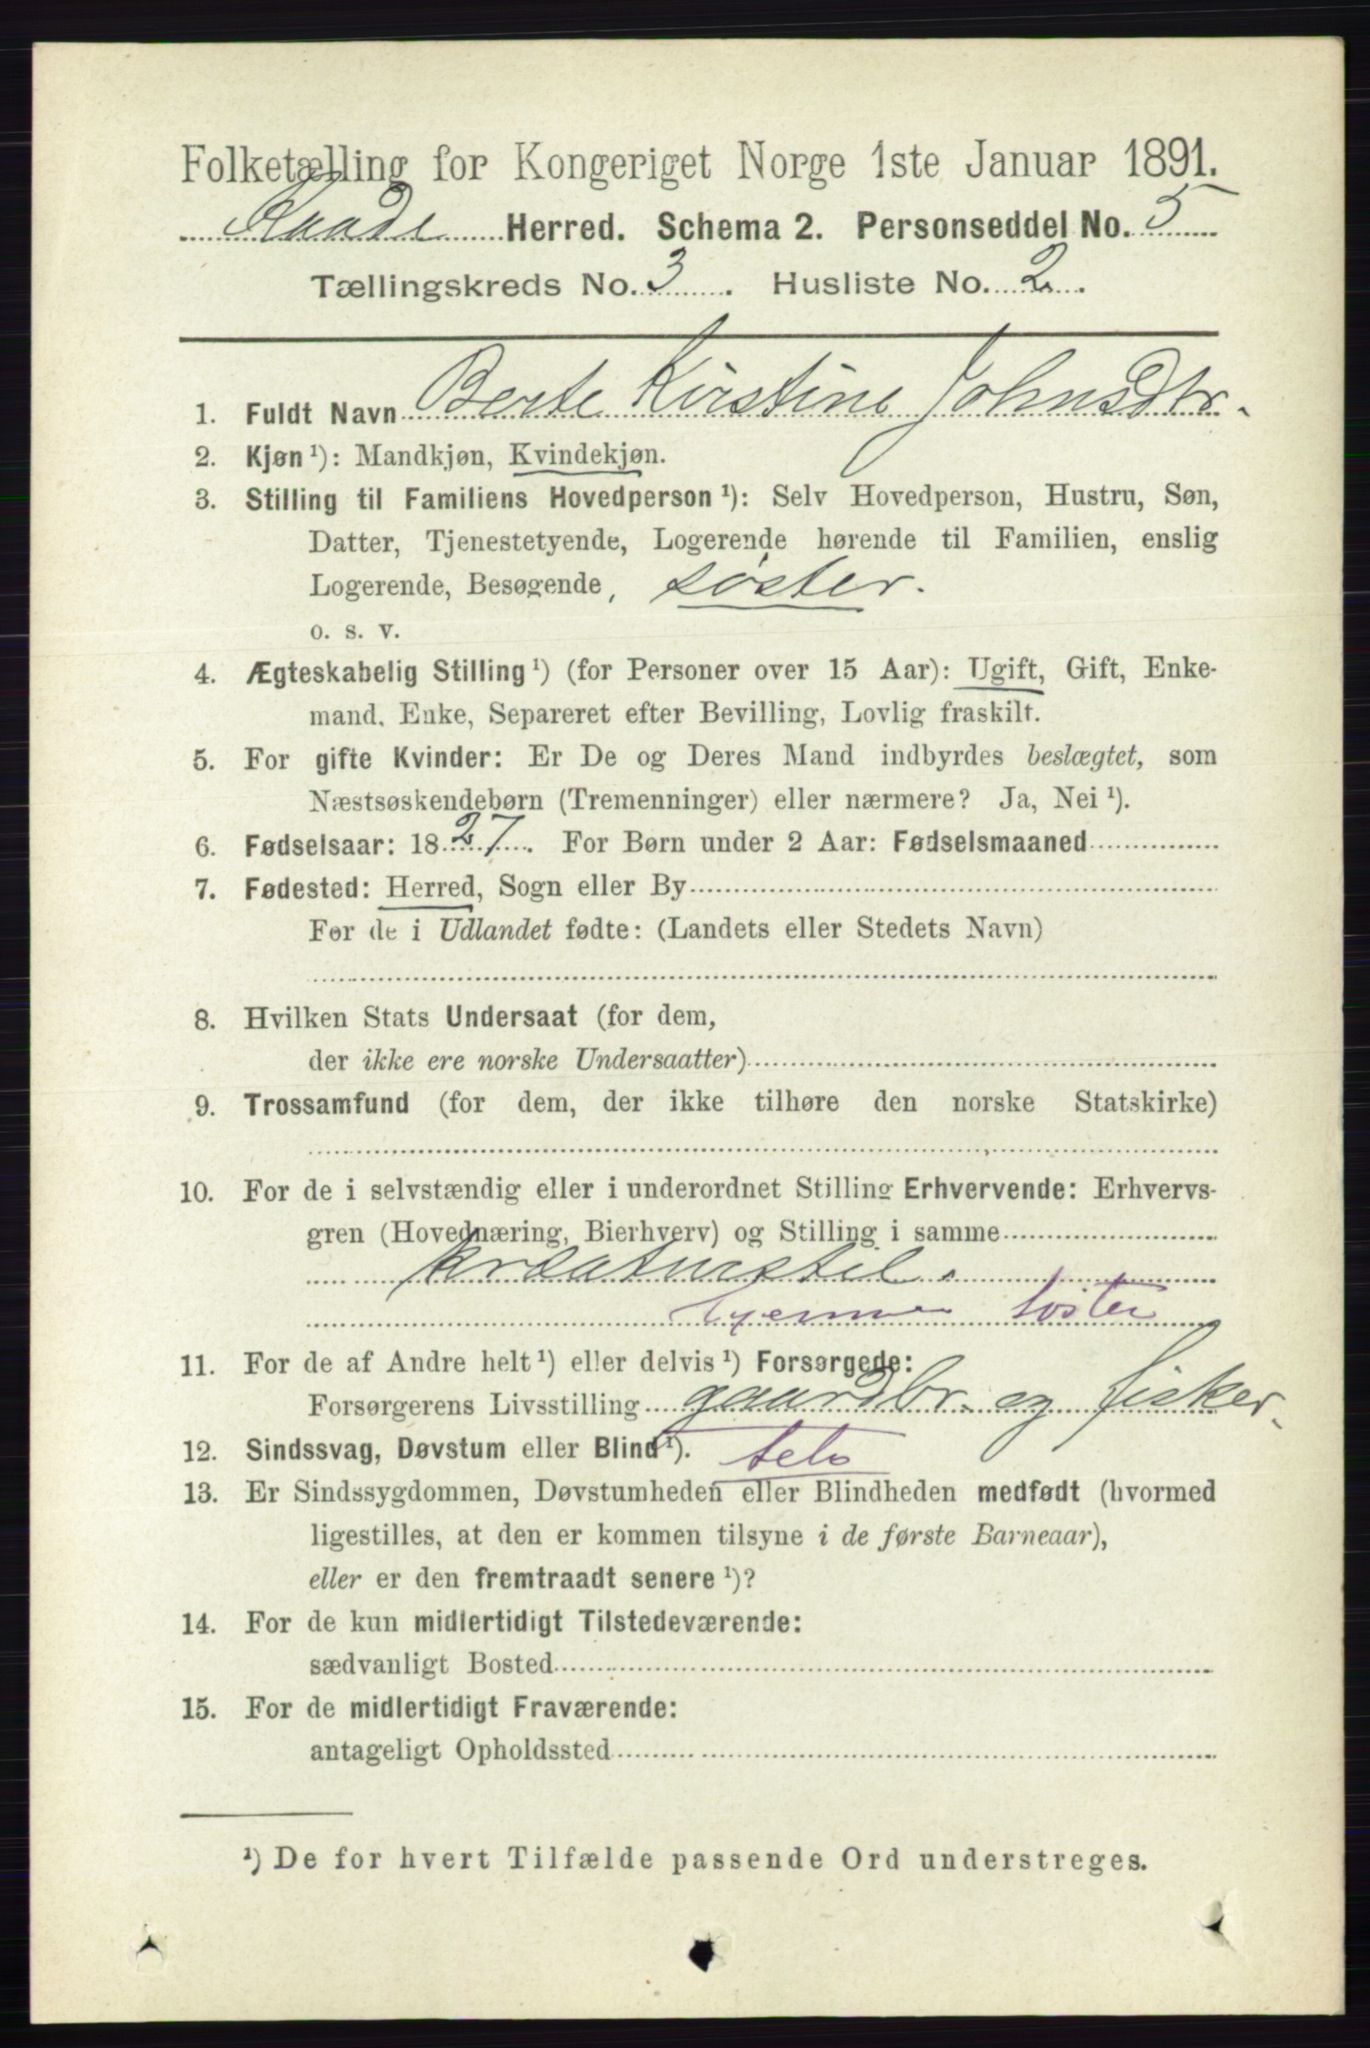 Folketælling for Kongeriget Norge 1ste Januar 1891.
Raade Herred. Schema 2. Personseddel No. 5
Tællingskreds No. 3. Husliste No. 2.
1. Fuldt Navn Berte Kirstine Johnsdtr.
2. Kjøn ¹): Mandkjøn, Kvindekjøn.
3. Stilling til Familiens Hovedperson ¹): Selv Hovedperson, Hustru, Søn,
Datter, Tjenestetyende, Logerende hørende til Familien, enslig
Logerende, Besøgende, søster.
o. s. v.
4. Ægteskabelig Stilling ¹) (for Personer over 15 Aar): Ugift, Gift, Enke-
mand, Enke, Separeret efter Bevilling, Lovlig fraskilt.
5. For gifte Kvinder: Er De og Deres Mand indbyrdes beslægtet, som
Næstsøskendebørn (Tremenninger) eller nærmere? Ja, Nei ¹).
6. Fødselsaar: 1827. For Børn under 2 Aar: Fødselsmaaned
7. Fødested: Herred, Sogn eller By
For de i Udlandet fødte: (Landets eller Stedets Navn)
8. Hvilken Stats Undersaat (for dem,
der ikke ere norske Undersaatter)
9. Trossamfund (for dem, der ikke tilhøre den norske Statskirke)
10. For de i selvstændig eller i underordnet Stilling Erhvervende: Erhvervs-
gren (Hovednæring, Bierhverv) og Stilling i samme
kreaturstel.
søster
11. For de af Andre helt ¹) eller delvis ¹) Forsørgede:
Forsørgerens Livsstilling gaardbr. og fisker.
12. Sindssvag, Døvstum eller Blind ¹).
13. Er Sindssygdommen, Døvstumheden eller Blindheden medfødt (hvormed
ligestilles, at den er kommen tilsyne i de første Barneaar),
eller er den fremtraadt senere ¹)?
14. For de kun midlertidigt Tilstedeværende:
sædvanligt Bosted
15. For de midlertidigt Fraværende:
antageligt Opholdssted
¹) De for hvert Tilfælde passende Ord understreges.